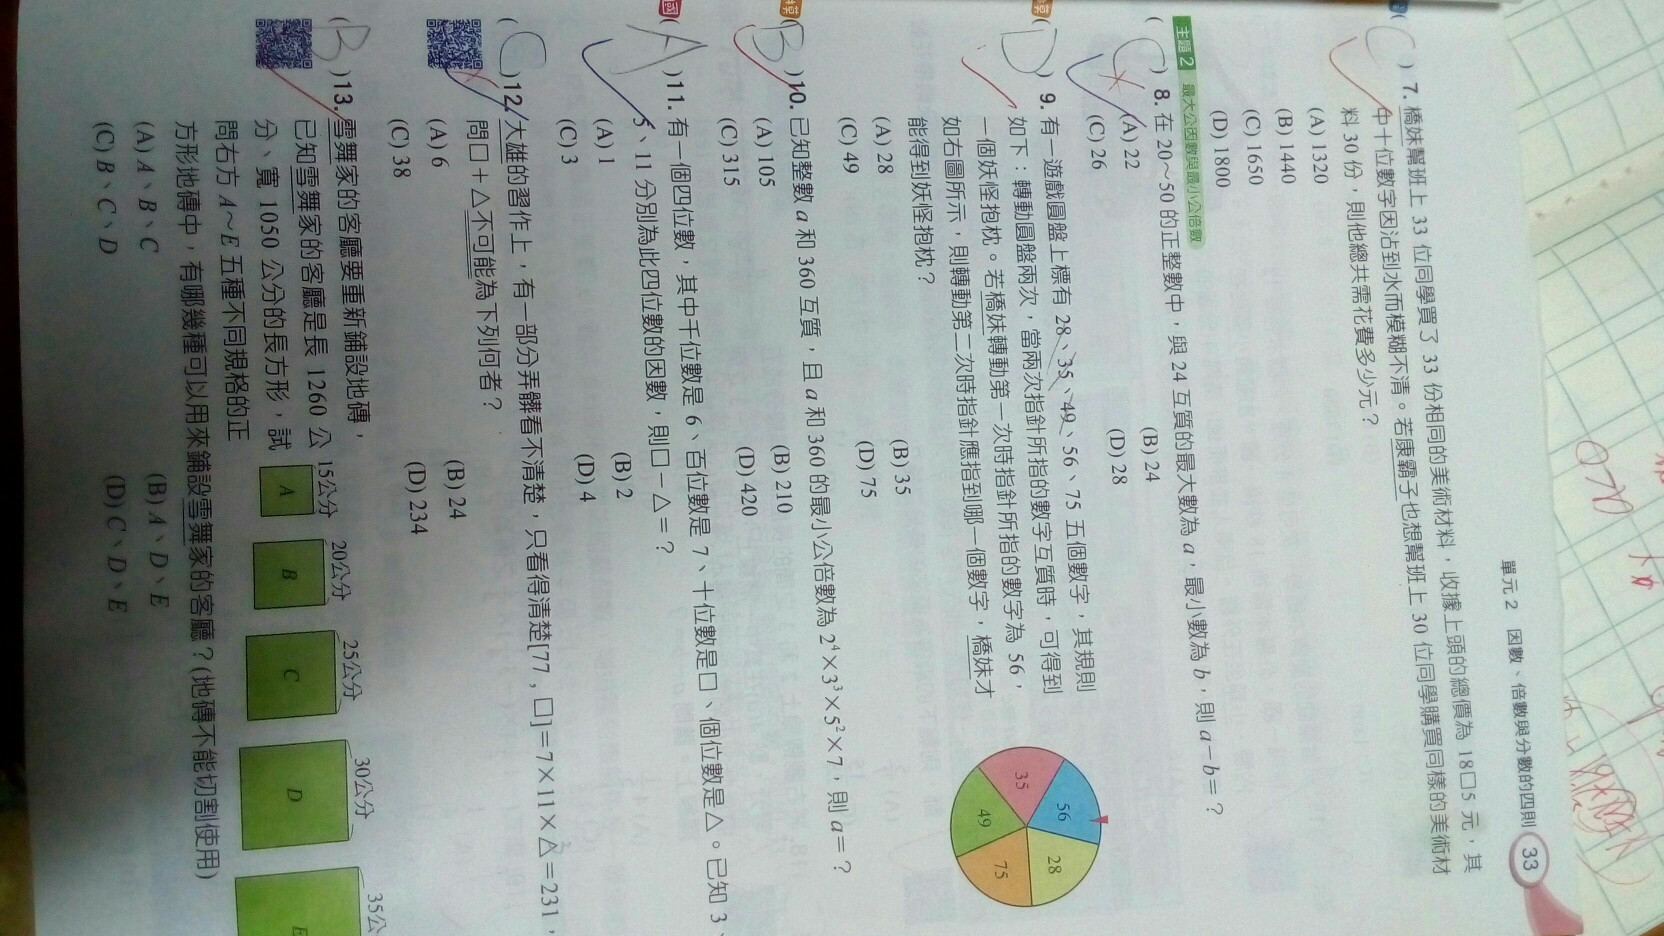 單元 2 因數、倍數與分數的四則 33
(C) 7. 橋妹幫班上 33 位同學買了 33 份相同的美術材料,收據上頭的總價為 18□5 元,其
中十位數字因沾到水而模糊不清。若康霸子也想幫班上 30 位同學購買同樣的美術材
料 30 份,則他總共需花費多少元?
(A) 1320
(B) 1440
(C) 1650
(D) 1800
主題 2 最大公因數與最小公倍數
(C) 8. 在 20~50 的正整數中,與 24 互質的最大數為 a,最小數為 b,則 a-b=?
(A) 22
(B) 24
(C) 26
(D) 28
(D) 9. 有一遊戲圓盤上標有 28、35、49、56、75 五個數字,其規則
如下:轉動圓盤兩次,當兩次指針所指的數字互質時,可得到
一個妖怪抱枕。若橋妹轉動第一次時指針所指的數字為 56,
如右圖所示,則轉動第二次時指針應指到哪一個數字,橋妹才
能得到妖怪抱枕?
56
28
75
49
35
(A) 28
(B) 35
(C) 49
(D) 75
(B) 10. 已知整數 a 和 360 互質,且 a 和 360 的最小公倍數為 2⁴×3³×5²×7,則 a=?
(A) 105
(B) 210
(C) 315
(D) 420
(A) 11. 有一個四位數,其中千位數是 6、百位數是 7、十位數是□、個位數是△。已知 3、
5、11 分別為此四位數的因數,則□-△=?
(A) 1
(B) 2
(C) 3
(D) 4
(C) 12. 大雄的習作上,有一部分弄髒看不清楚,只看得清楚[77,□]=7×11×△=231,
問□+△不可能為下列何者?
(A) 6
(B) 24
(C) 38
(D) 234
(B) 13. 雪舞家的客廳要重新鋪設地磚,
已知雪舞家的客廳是長 1260 公
分、寬 1050 公分的長方形,試
問右方 A~E 五種不同規格的正
方形地磚中,有哪幾種可以用來鋪設雪舞家的客廳?(地磚不能切割使用)
15公分
20公分
25公分
30公分
35公
A
B
C
D
E
(A) A、B、C
(B) A、D、E
(C) B、C、D
(D) C、D、E